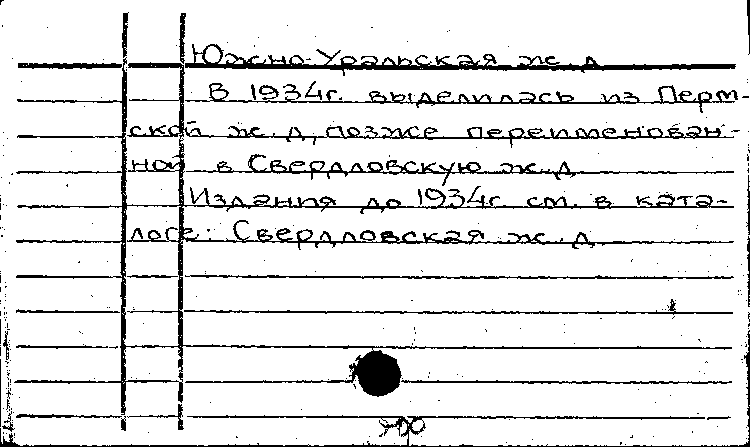 Южно-Уральская ж.д
В 1934г. выделилась из Перм-
ской ж.д, позже переименован-
ной в Свердловскую ж.д
Издания до 1934г. см. в ката-
логе: Свердловская ж.д